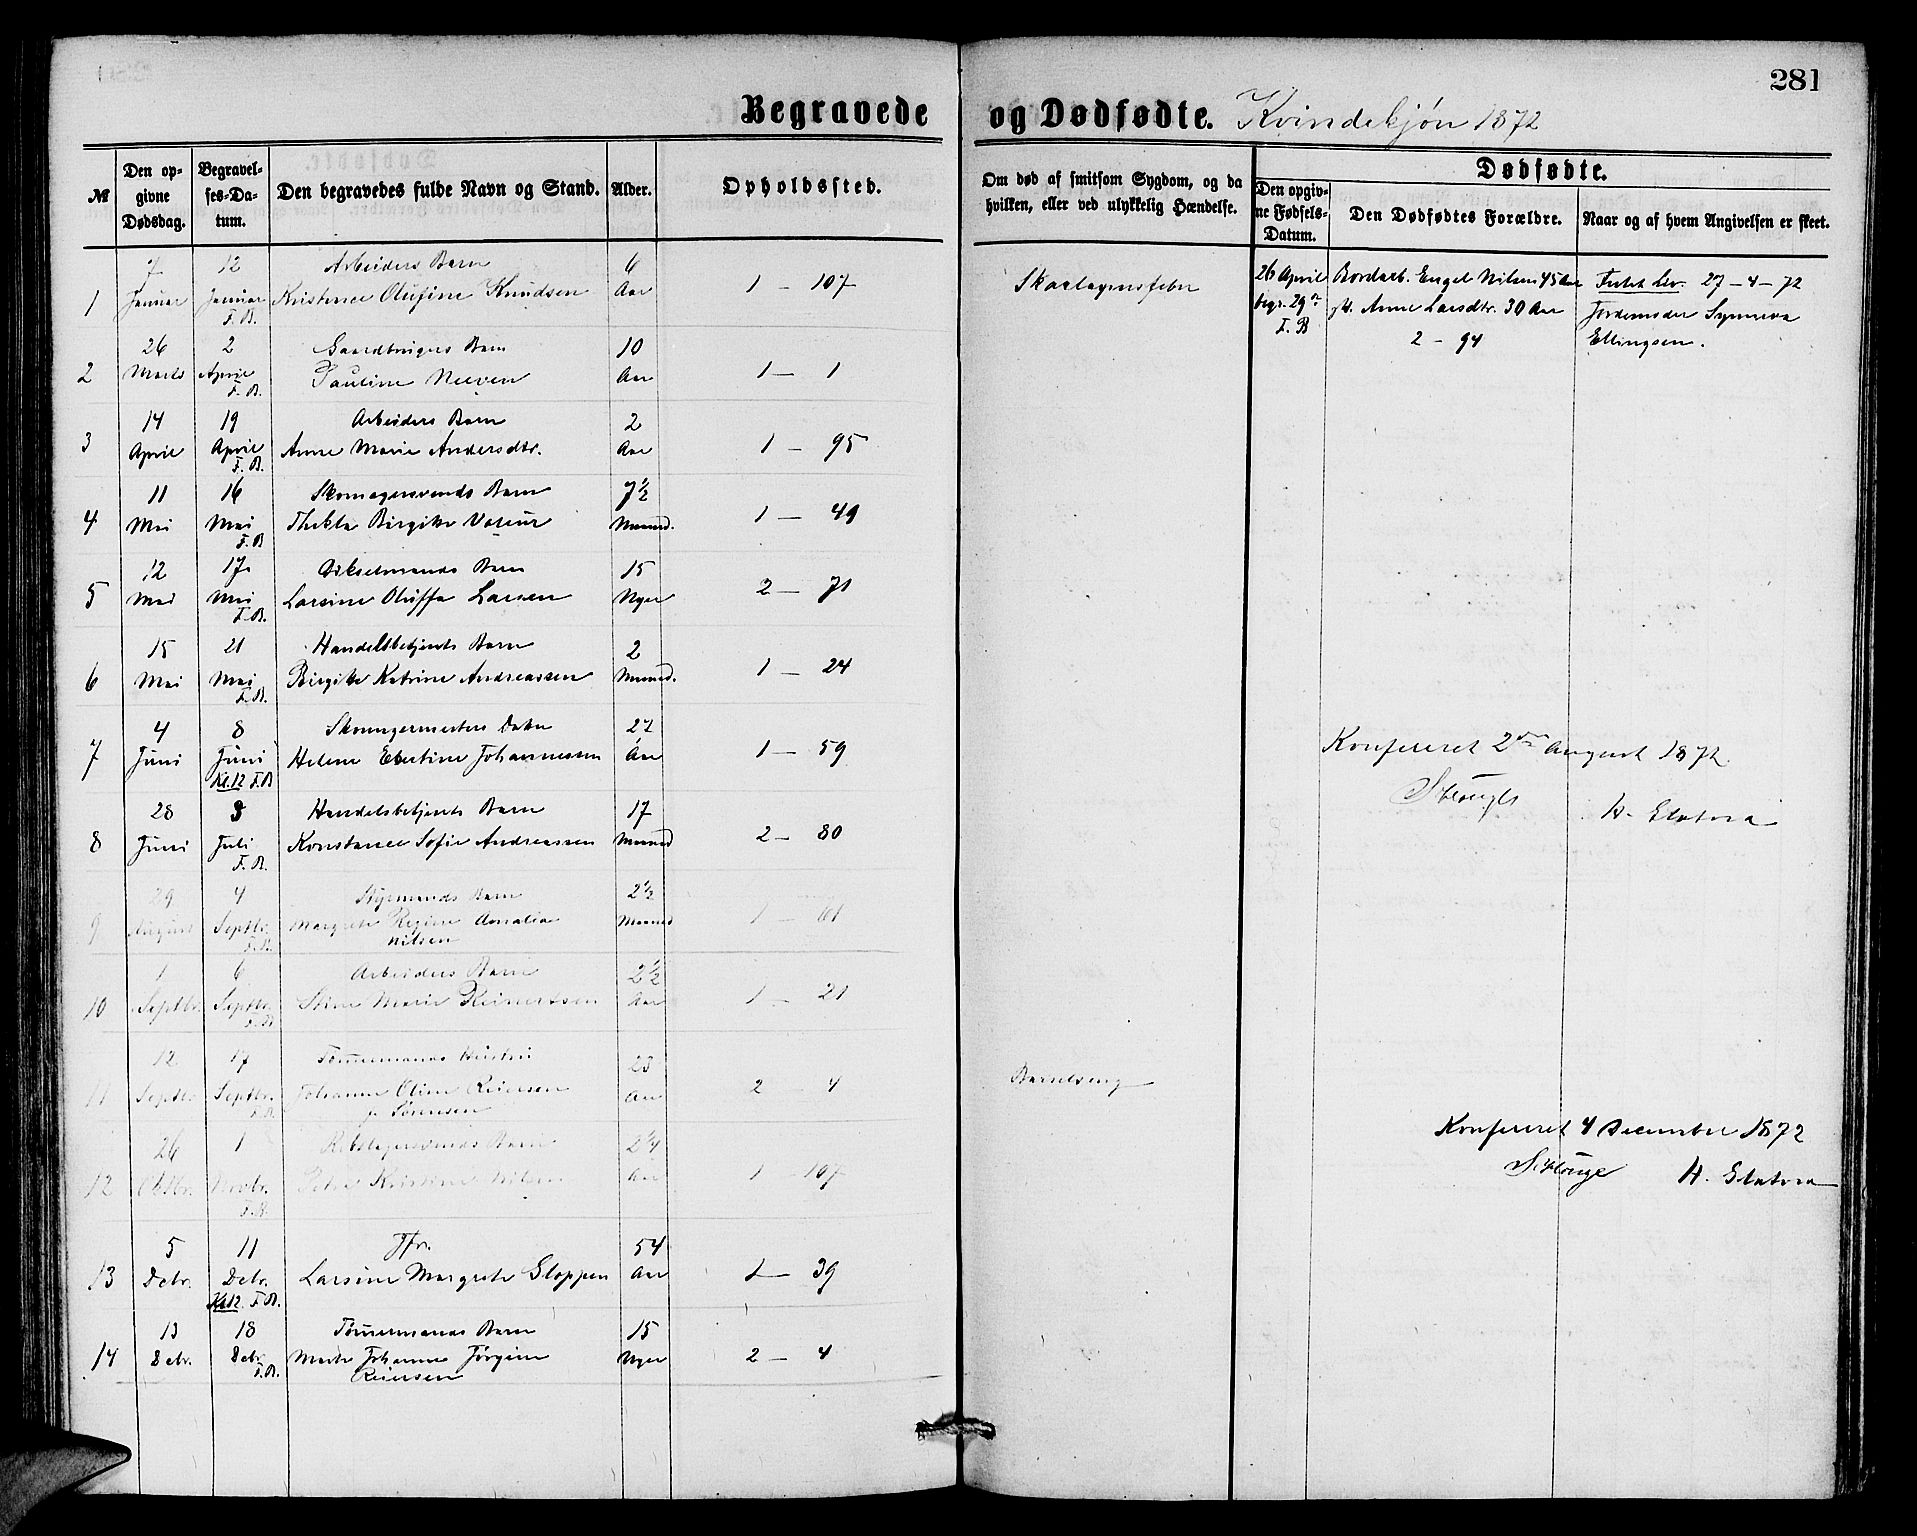 281
Begravede og Dødfødte. Kvindekjøn 1872
№
Den opgivne Dødsdag.
Begravelses-Datum.
Den begravedes fulde Navn og Stand.
Alder.
Opholdssted.
Om død af smitsom Sygdom, og da hvilken, eller ved ulykkelig Hændelse.
Dødfødte.
Den opgivne Fødsels-Datum.
Den Dødfødtes Forældre.
Naar og af hvem Angivelsen er skeet.
7 12 Arbeiders Barn 6
1 Januar Januar Kristence Olufine Knudsen Aar 1 - 107 Skarlagensfeber
F. B.
26 April Bordarb. Engel Nilsen 45 Aar Født lev. 27-4-72
begr. 29de Anne Larsdtr. 30 Aar Jordemoder Synneva
F. B 2 - 94 Ellingsen.
26 2 Gaardbrugers Barn 10
2 Marts April Pauline Aar 1 - 1
F. B.
14 19 Arbeiders Barn 2
3 April April Anne Marie Andersdtr. Aar 1 - 95
F. B.
11 16 Skomagersvends Barn 7½
4 Mai Mai Thekla Birgitte Maaned. 1 - 49
F. B
12 17 Barn 15
5 Mai Mai Larsine Oluffa Larsen Uger 2 - 71
F. B.
15 21 Handelsbetjents Barn 2
6 Mai Mai Birgitte Katrine Andreassen Maaned. 1 - 24
F. B.
4 8 Skomagermesters Datter 27
7 Juni Juni Helene Johannessen Aar 1 - 59
Kl. 12 F. B
Konfereret 2den August 1872.
28 3 Handelsbetjents Barn 17
8 Juni Juli Konstance Sofie Andreassen Maaned 2 - 80
F. B.
29 4 Styrmands Barn 2½
9 August Septbr. Margrete Regine Amalia Maaned 1 -
F. B. Nilsen
1 6 Arbeiders Barn 2½
10 Septbr. Septbr. Stine Marie Reinertsen Aar 1 - 21
F. B
12 17 Tømmermands Hustru 23
11 Septbr. Septbr. Johanne Oline Reiersen Aar 2 - 4 Barselseng
F. B. f. Sørensen
26 1 Rebslagersvends Barn 2¼
12 Oktbr. Novbr. Petra Kristine Nilsen Aar 1 - 107
F. B.
Konfereret 4 December 1872
5 11 Jfr. 54
13 Debr. Debr. Larsine Margrete Gloppen Aar 1 - 39
Kl. 12. F. B.
13 18 Tømmermands Barn 15
14 Debr. Debr. Marte Johanne Jørgine Uger 2 - 4
F. B. Reiersen